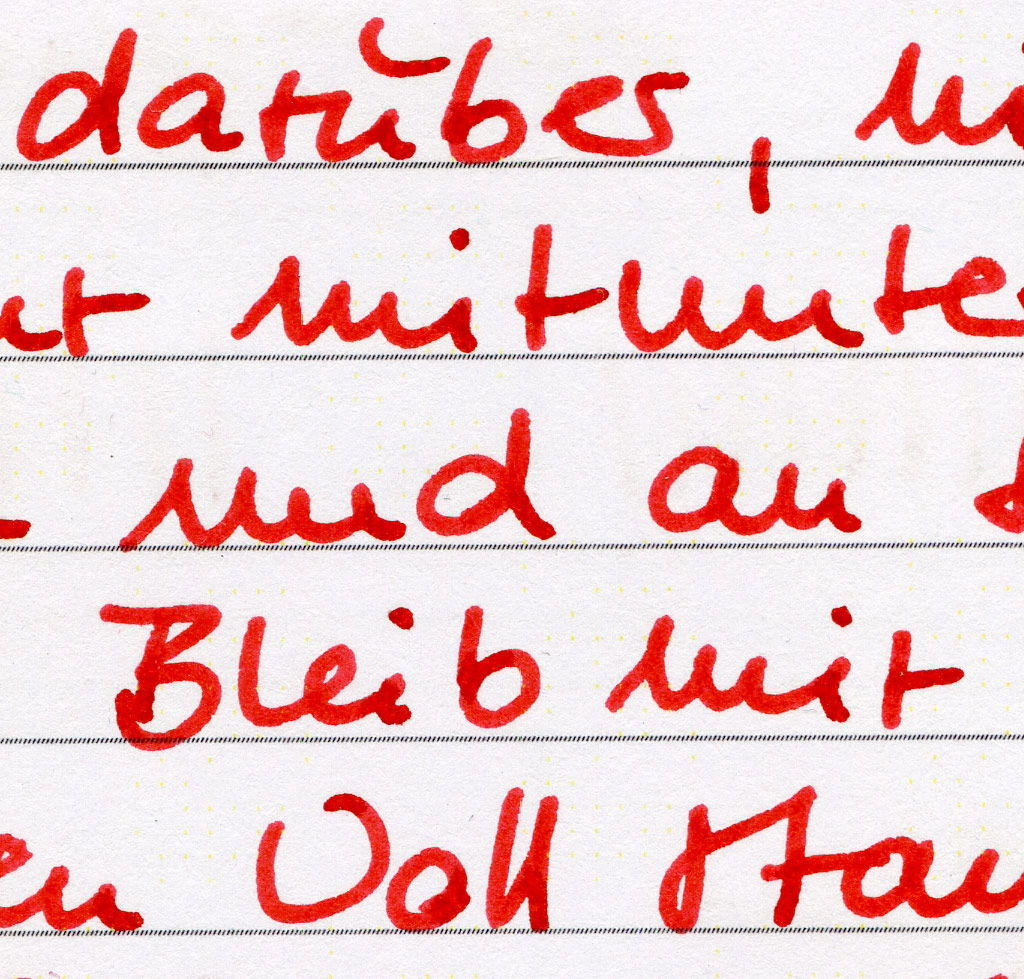 darüber, mi
ut mitunter
und an
Bleib mit
en Voll Hau